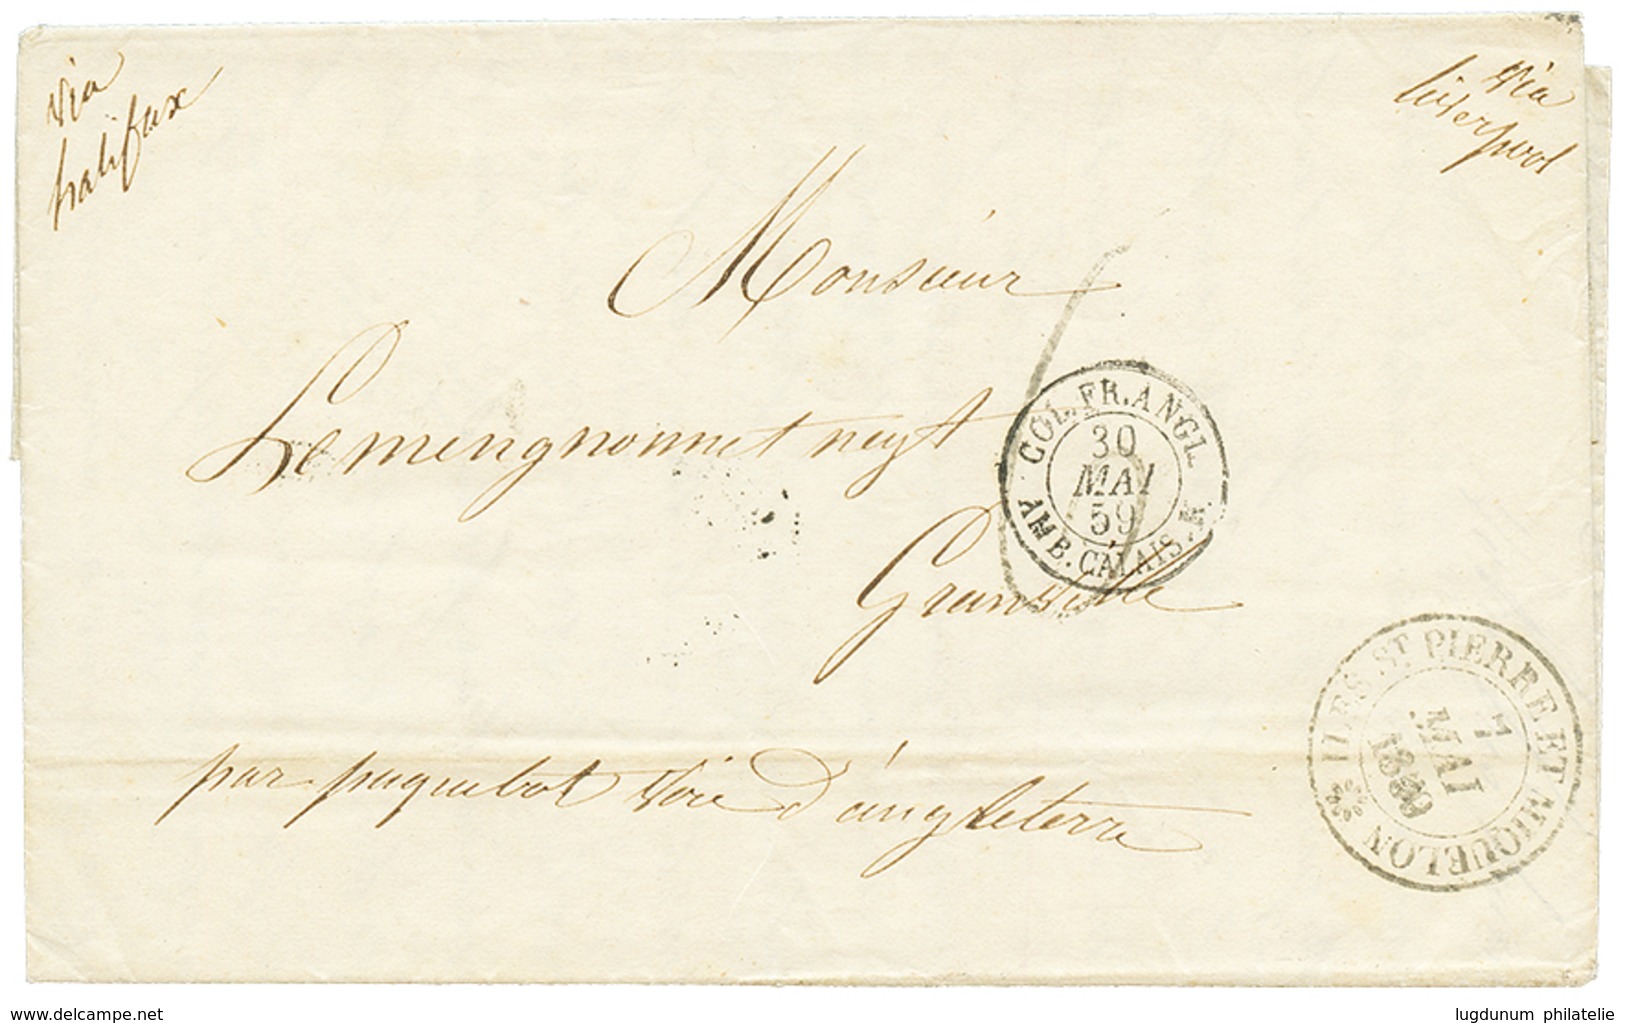 via
halifax
via
liverpool
Monsieur
Lemengnonnet negt
Granville
par paquebot voie d'angleterre
COL. FR. ANGL.
30
MAI
59
AMB. CALAIS.
ILES ST PIERRE ET MIQUELON
7
MAI
1859
www.delcampe.net
lugdunum philatelie